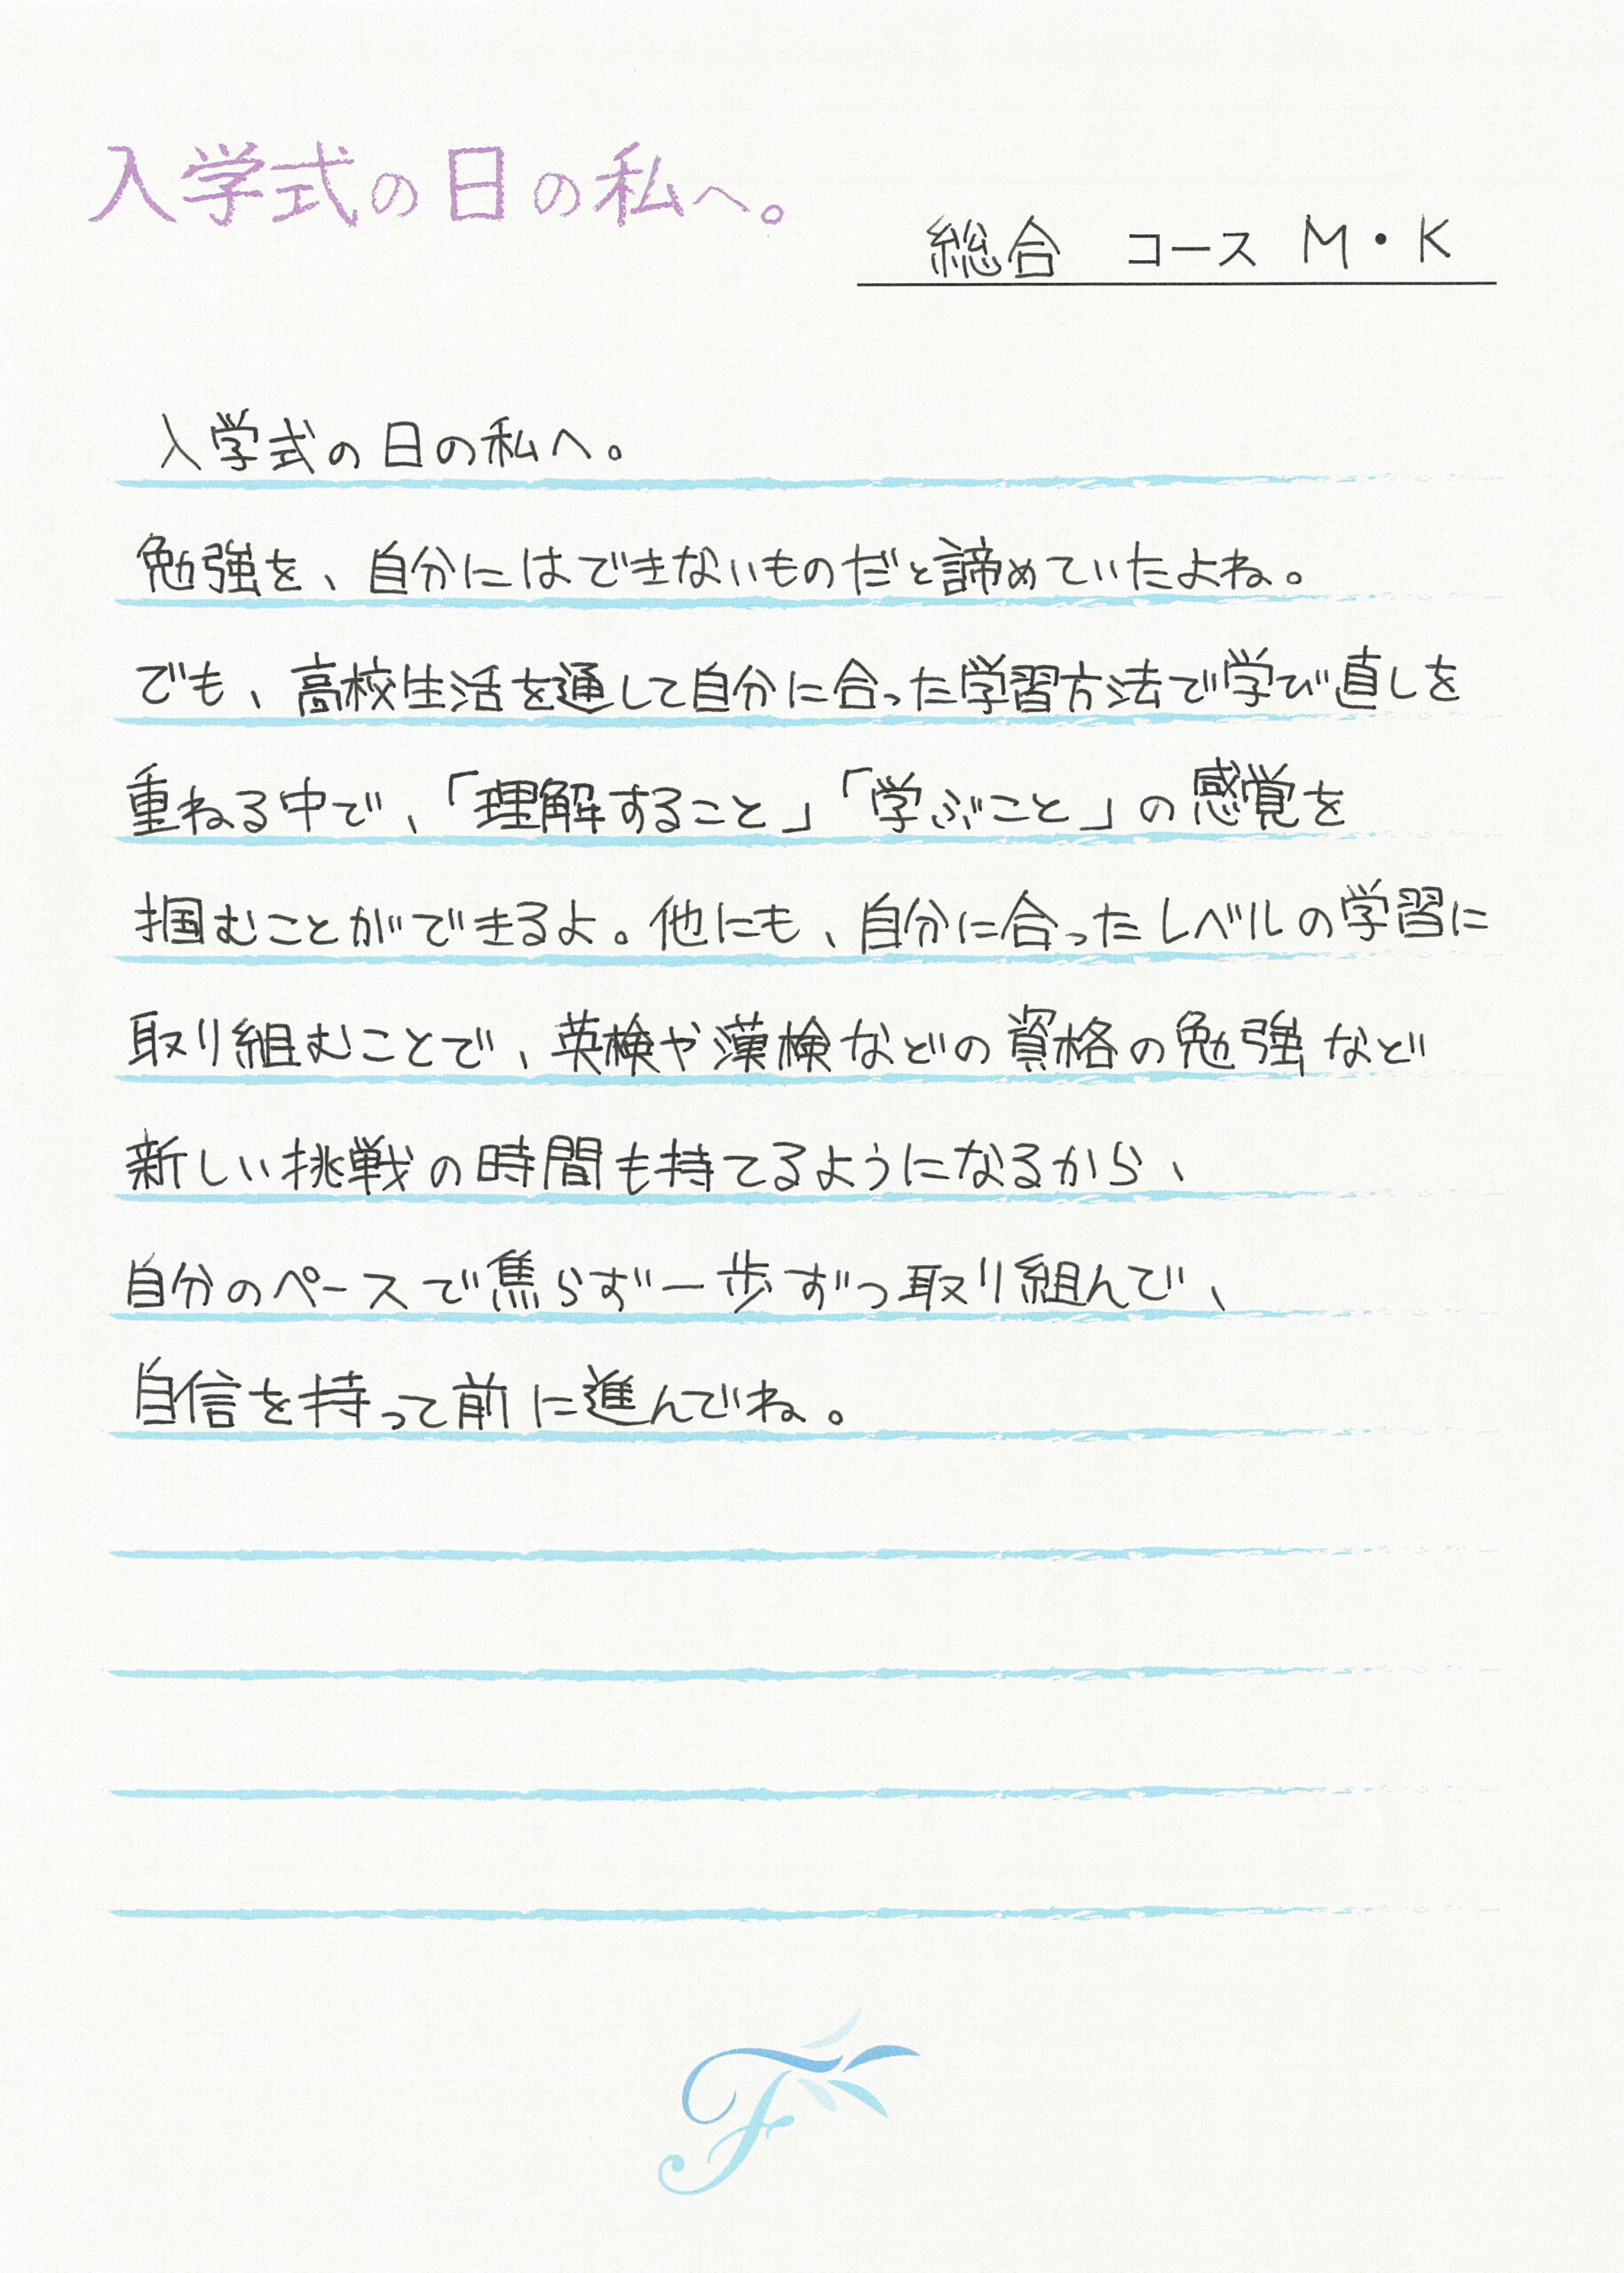 入学式の日の私へ。
総合 コース M・K
入学式の日の私へ。
勉強を、自分にはできないものだと諦めていたよね。
でも、高校生活を通して自分に合った学習方法で学び直しを
重ねる中で、「理解すること」「学ぶこと」の感覚を
掴むことができるよ。他にも、自分に合ったレベルの学習に
取り組むことで、英検や漢検などの資格の勉強など
新しい挑戦の時間も持てるようになるから、
自分のペースで焦らず一歩ずつ取り組んで、
自信を持って前に進んでね。
F